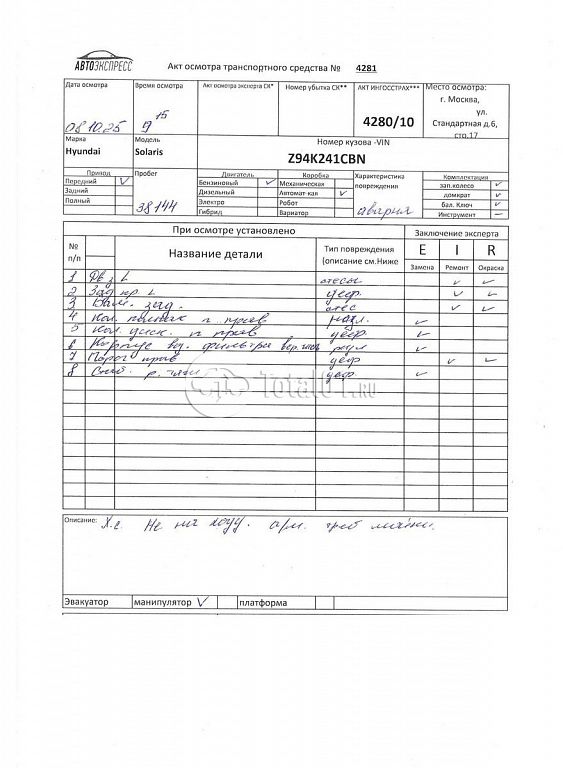 АВТОЭКСПРЕСС
Акт осмотра транспортного средства № 4281
Дата осмотра
08.10.25
Время осмотра
9 15
Акт осмотра эксперта СК*
Номер убытка СК**
АКТ ИНГОССТРАХ***
4280/10
Место осмотра:
г. Москва,
ул.
Стандартная д.6,
стр.17
Марка
Hyundai
Модель
Solaris
Номер кузова -VIN
Z94K241CBN
Привод
Передний V
Задний
Полный
Пробег
38144
Двигатель
Бензиновый V
Дизельный
Электро
Гибрид
Коробка
Механическая
Автомат-кая V
Робот
Вариатор
Характеристика
повреждения
авария
Комплектация
зап.колесо V
домкрат V
бал. Ключ V
Инструмент –
При осмотре установлено
Заключение эксперта
№
п/п
Название детали
Тип повреждения
(описание см.Ниже
E I R
Замена Ремонт Окраска
1 Дв з L V V
2 Зад кр. L деф. V V
3 Бам. зад. V V
4 Кол. колпак п. прав V
5 Кол. диск. п прав деф. V
6 Корпус воз. фильтра V
7 Порог прав деф V V
8 р. тяги деф. V
Total01.RU
Описание: Х.е. Не на ходу. а/м. треб мойки.
Эвакуатор манипулятор V платформа